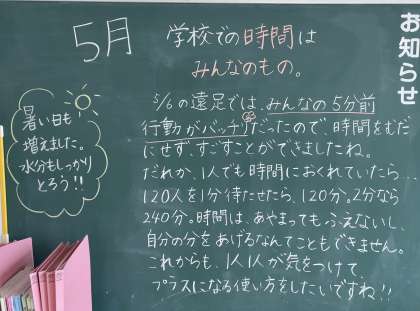 お知らせ
5月 学校での時間は
みんなのもの。
5/6の遠足では、みんなの5分前
行動がバッチリだったので、時間をむだ
にせず、すごすことができましたね。
だれか、1人でも時間におくれていたら…
120人を1分待たせたら、120分。2分なら
240分。時間は、あやまってもふえないし、
自分の分をあげるなんてこともできません。
これからも、1人1人が気をつけて、
プラスになる使い方をしたいですね!!
暑い日も
増えました。
水分もしっかり
とろう!!